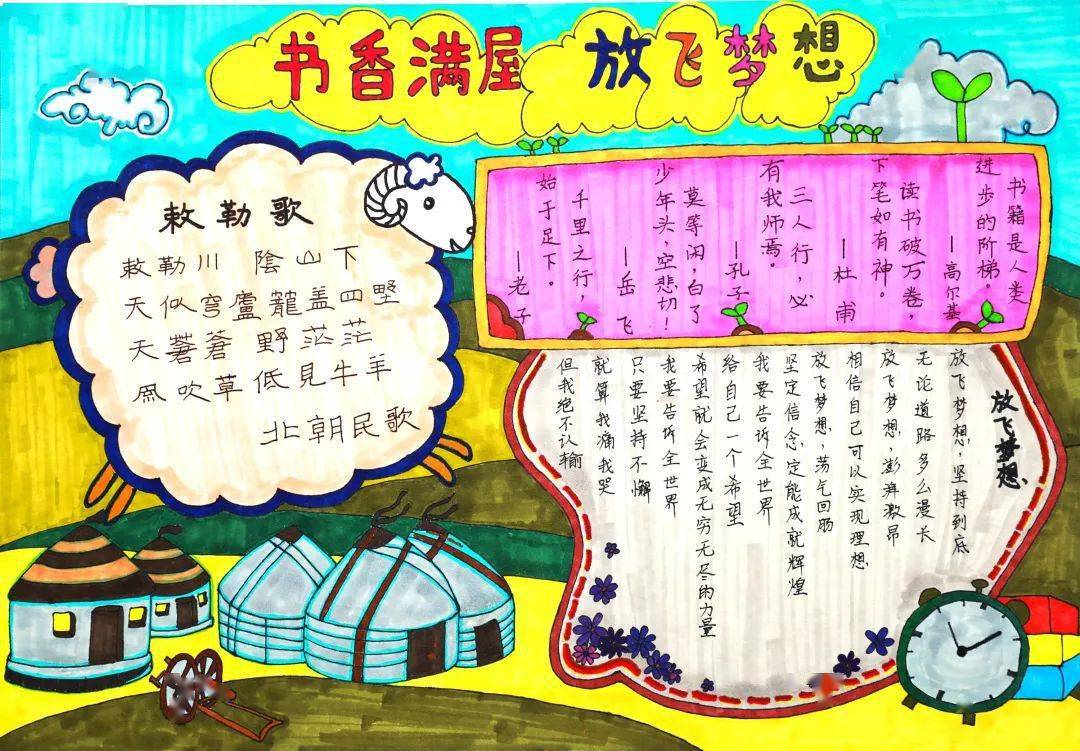 书香满屋 放飞梦想
敕勒歌
敕勒川 陰山下
天似穹廬龍盖四野
天蒼蒼 野茫茫
風吹草低見牛羊
北朝民歌
书籍是人类
进步的阶梯。
—高尔基
读书破万卷，
下笔如有神。
—杜甫
三人行，必
有我师焉。
—孔子
莫等闲，白了
少年头，空悲切！
—岳飞
千里之行，
始于足下。
—老子
放飞梦想
放飞梦想，坚持到底
无论道路多么漫长
放飞梦想，澎湃激昂
相信自己可以实现理想
放飞梦想，荡气回肠
坚定信念定能成就辉煌
我要告诉全世界
给自己一个希望
希望就会变成无穷无尽的力量
我要告诉全世界
只要坚持不懈
就算我痛我哭
但我绝不认输